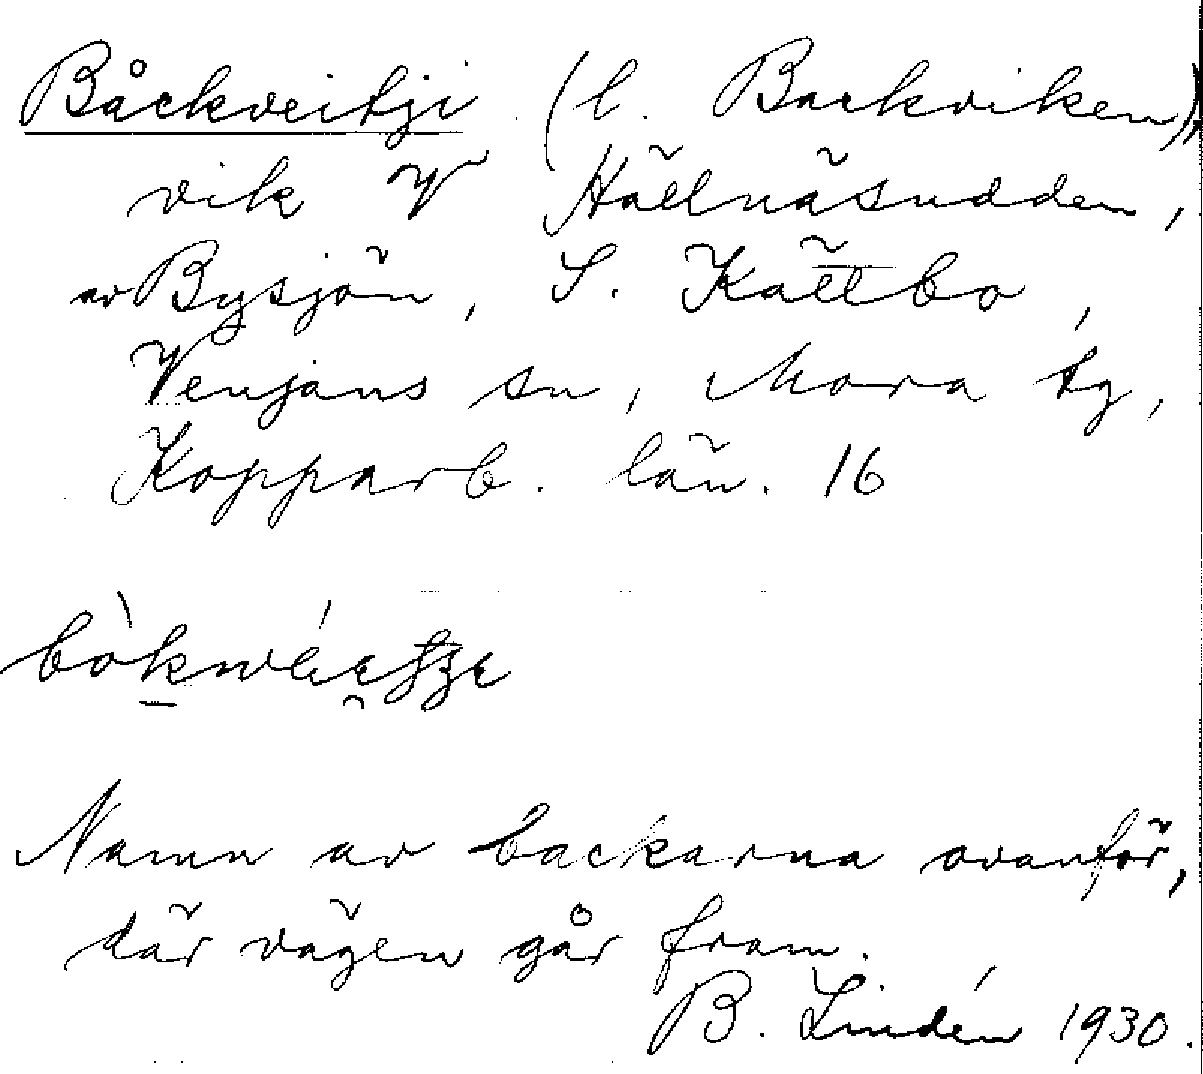 Båckveitji (l. Backviken),
vik V Hällnäsudden,
av Bysjön, S. Källbo,
Venjans sn, Mora tg,
Kopparb. län. 16
Namn av backarna ovanför,
där vägen går fram.
B. Lindén 1930.